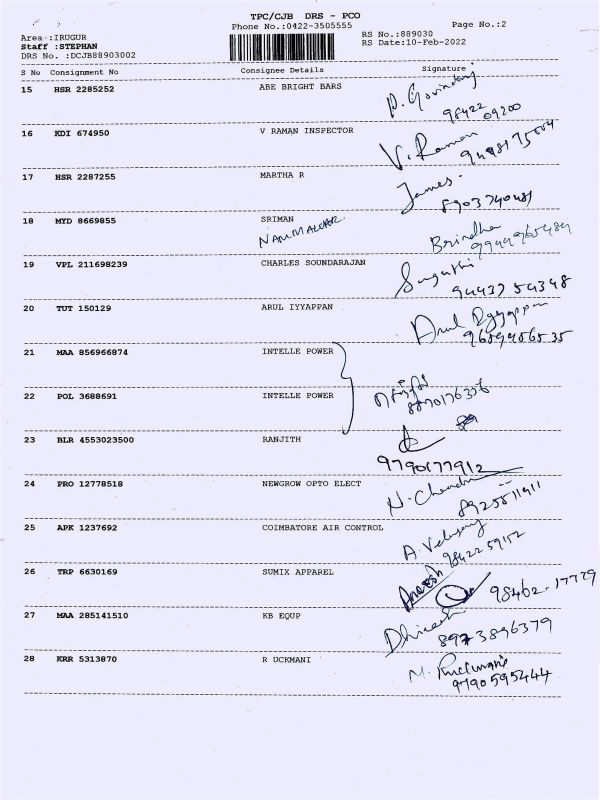 TPC/CJB DRS - PCO
Phone No.:0422-3505555 Page No.:2
Area :IRUGUR RS No.:889030
Staff :STEPHAN RS Date:10-Feb-2022
DRS No. :DCJB88903002
S No Consignment No Consignee Details Signature
15 HSR 2285252 ABE BRIGHT BARS P. Govindaraj
98422 09200
16 KDI 674950 V RAMAN INSPECTOR V. Raman
17 HSR 2287255 MARTHA R James.
8903740481
18 MYD 8669855 SRIMAN Brindha
9944965484
19 VPL 211698239 CHARLES SOUNDARAJAN Suguthi
94437 54348
20 TUT 150129 ARUL IYYAPPAN Arul Iyyappan
9689486535
21 MAA 856966874 INTELLE POWER
22 POL 3688691 INTELLE POWER
8870176336
23 BLR 4553023500 RANJITH
9790177912
24 PRO 12778518 NEWGROW OPTO ELECT N. Chandra
8925511911
25 APK 1237692 COIMBATORE AIR CONTROL A. Velusamy
9842259152
26 TRP 6630169 SUMIX APPAREL Aneesh 98462.17729
27 MAA 285141510 KB EQUP Dhinesh
8973896379
28 KRR 5313870 R UCKMANI M. Ruckmani
9790595444